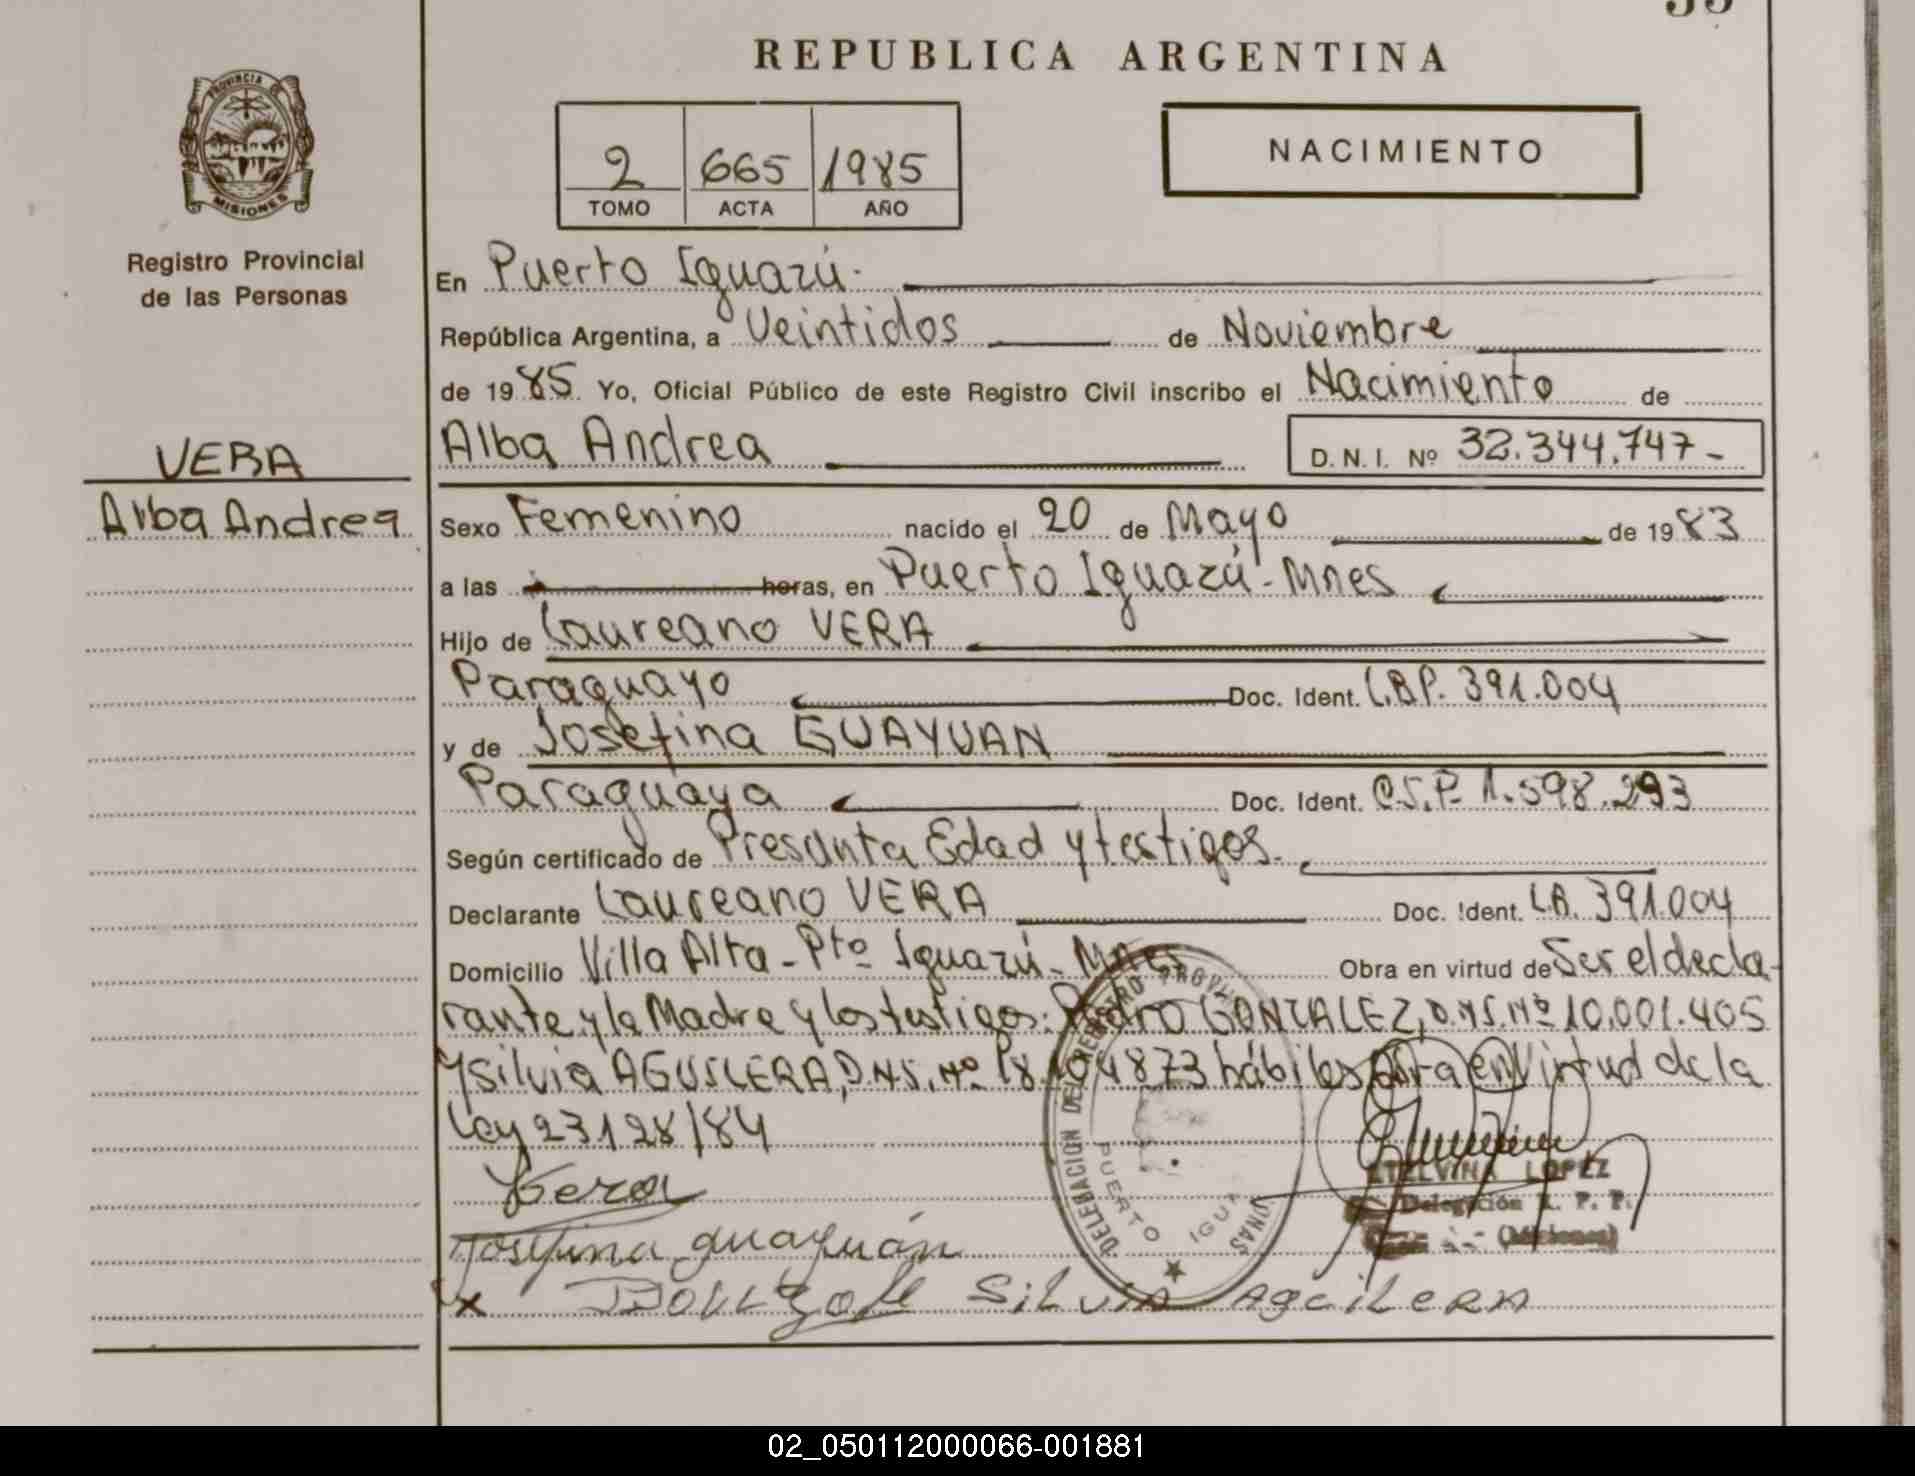 REPUBLICA ARGENTINA
PROVINCIA DE
MISIONES
Registro Provincial
de las Personas
2 665 1985
TOMO ACTA AÑO
NACIMIENTO
En Puerto Iguazú.
República Argentina, a Veintidos de Noviembre
de 1985. Yo, Oficial Público de este Registro Civil inscribo el Nacimiento de
Alba Andrea D. N. I. Nº 32.344.747-
VERA
Alba Andrea
Sexo Femenino nacido el 20 de Mayo de 1983
a las horas, en Puerto Iguazú-Mnes
Hijo de Laureano VERA
Paraguayo Doc. Ident. L.B.P. 391.004
y de Josefina GUAYUAN
Paraguaya Doc. Ident. C.I.P. 1.598.293
Según certificado de Presunta Edad y testigos.
Declarante Laureano VERA Doc. Ident. 391.004
Domicilio Villa Alta-Ptº Iguazú-Mnes Obra en virtud de Ser el decla-
rante y la Madre y los testigos: Pedro GONZALEZ, D.N.I. Nº 10.001.405
y Silvia AGUILERA, D.N.I. Nº 18. 4873 hábiles en Virtud de la
Ley 23128/84
Vera
Josefina guayuán
x Silvia Aguilera
DELEGACION DEL REGISTRO PROVIN
PUERTO IGUA
ETELVINA LOPEZ
Delegación R. P. P.
(Misiones)
02_050112000066-001881